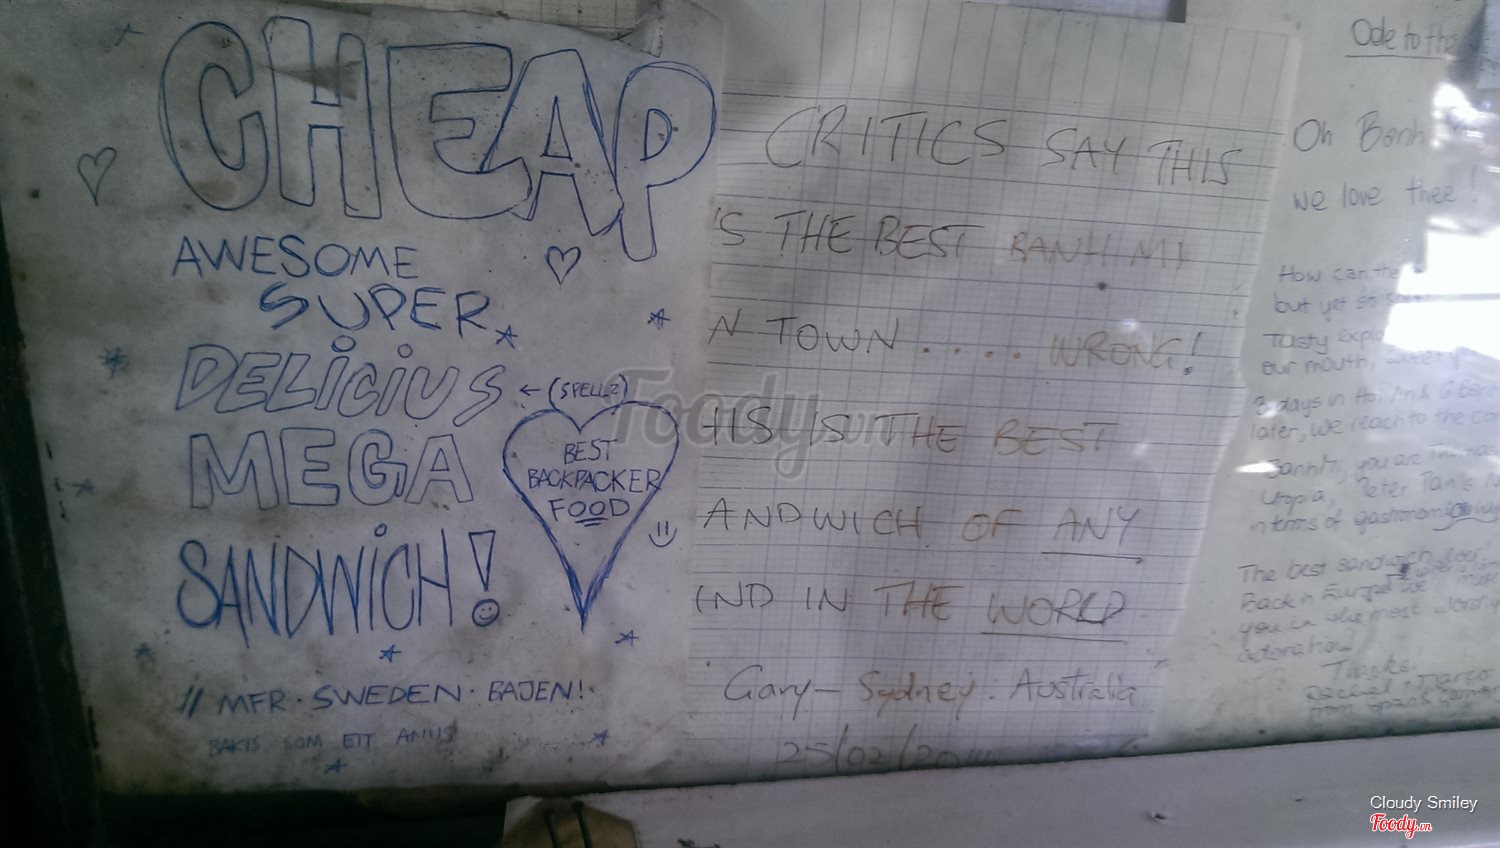 CHEAP
AWESOME
SUPER
DELICIUS
← (SPELL?)
MEGA
SANDWICH!
BEST
BACKPACKER
FOOD
// MFR · SWEDEN · BAJEN!
SOM ETT
CRITICS SAY THIS
'S THE BEST BANH MI
N TOWN ..... WRONG!
HIS IS THE BEST
ANDWICH OF ANY
IND IN THE WORLD
Gary - Sydney. Australia
25/02/201
Ode to the
Oh Banh
we love thee!
How can the
but yet so
Tasty explo
our mouth, sweet
3 days in Hoi An & 6 Banh
later, we reach to the
Banh Mi, you are
Utopia, Peter Pan's
in terms of
The best sandwich
Back in Europe we
you in the most
Thanks.
Rachel + Marco
from Spain &
Foody.vn
Cloudy Smiley
Foody.vn